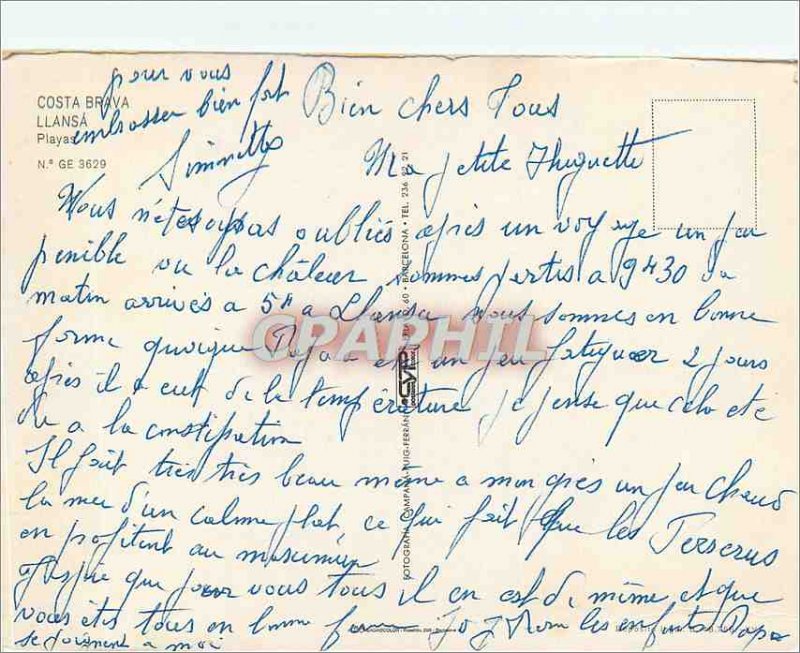 Bien chers Tous
Ma petite Huguette
Nous n'êtes pas oubliés après un voyage un peu
penible vu la châleur sommes partis a 9H30 du
matin arrivés a 5H a Llansa nous sommes en bonne
forme quoique Papa est un peu fatiguer 2 jours
après il a eut de la température je pense que cela été
du a la constipation
Il fait très très beau même a mon gres un peu chaud
la mer d'un calme plat ce qui fait que les
en profitent au maximum
J'espère que pour vous tous il en est de même et que
vous êtes tous en bonne forme Jo les enfants Papa
se joignent a moi
pour vous
embrasser bien fort
COSTA BRAVA
LLANSÁ
Playas
N.º GE 3629
FOTOGRAFIA COMPAÑA - PUIG-FERRÁN
CYP
BARCELONA • TEL. 236 82 21
CPAPHIL